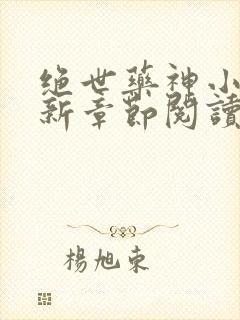 绝世藥神小
新章節閱讀
楊旭東